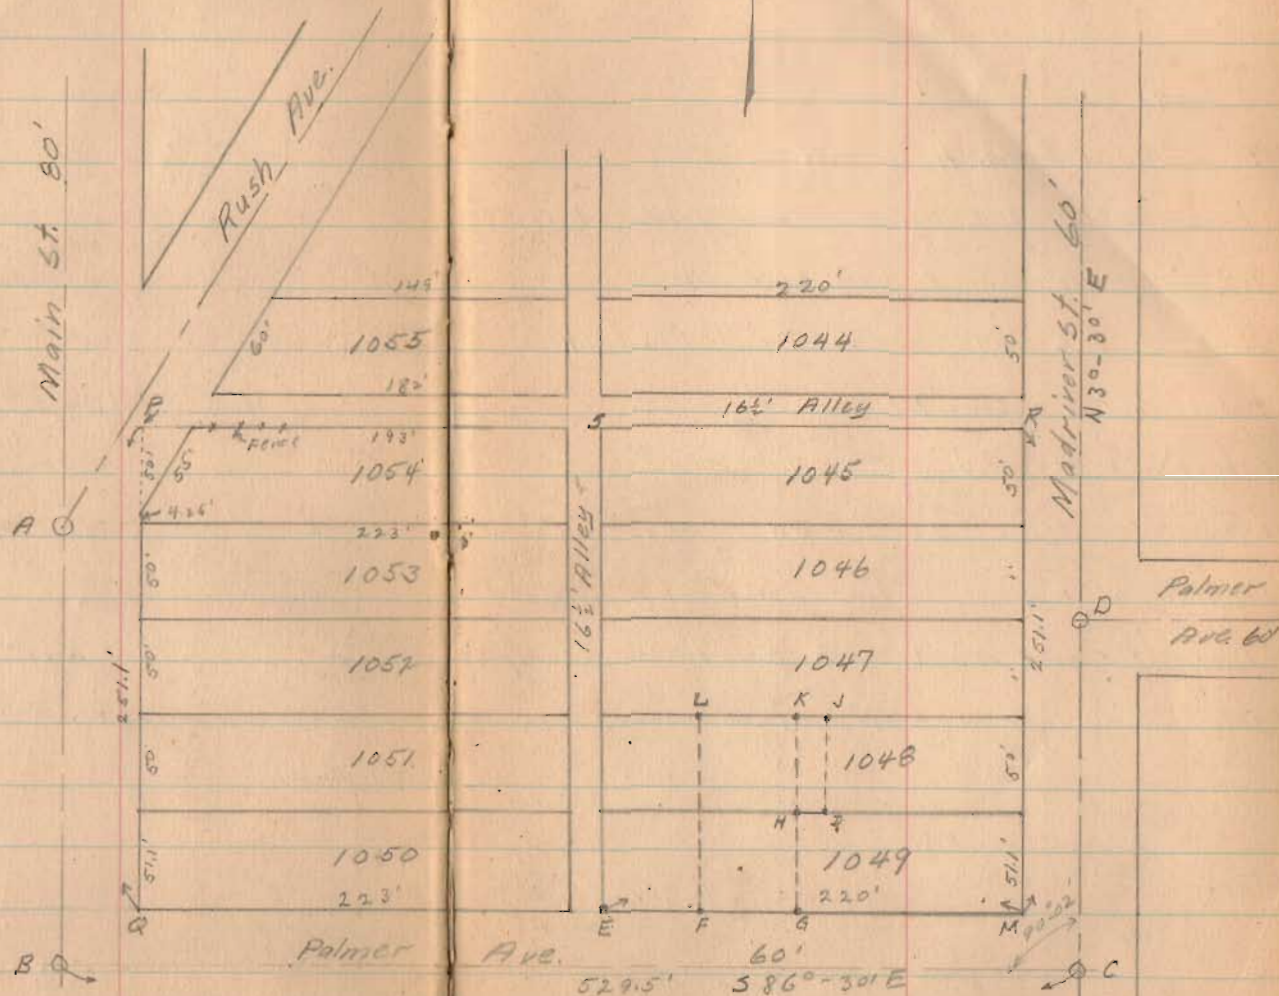 Main St. 80'
Rush Ave.
Madriver St. 60'
N 3°-30' E
149'
220'
60'
1055
1044
50'
182'
16½' Alley
P
S
R
Fence
193'
50'
55'
1054
1045
50'
A
4.25'
223'
50'
1053
16½' Alley
1046
"
Palmer
Ave. 60'
D
50'
1052
1047
"
251.1'
251.1'
L
K
J
50'
1051
1048
50'
H
51.1'
1050
1049
51.1'
223'
220'
Q
E
F
G
M
90°-02'
Palmer Ave. 60'
B
C
529.5'
S 86°-30' E